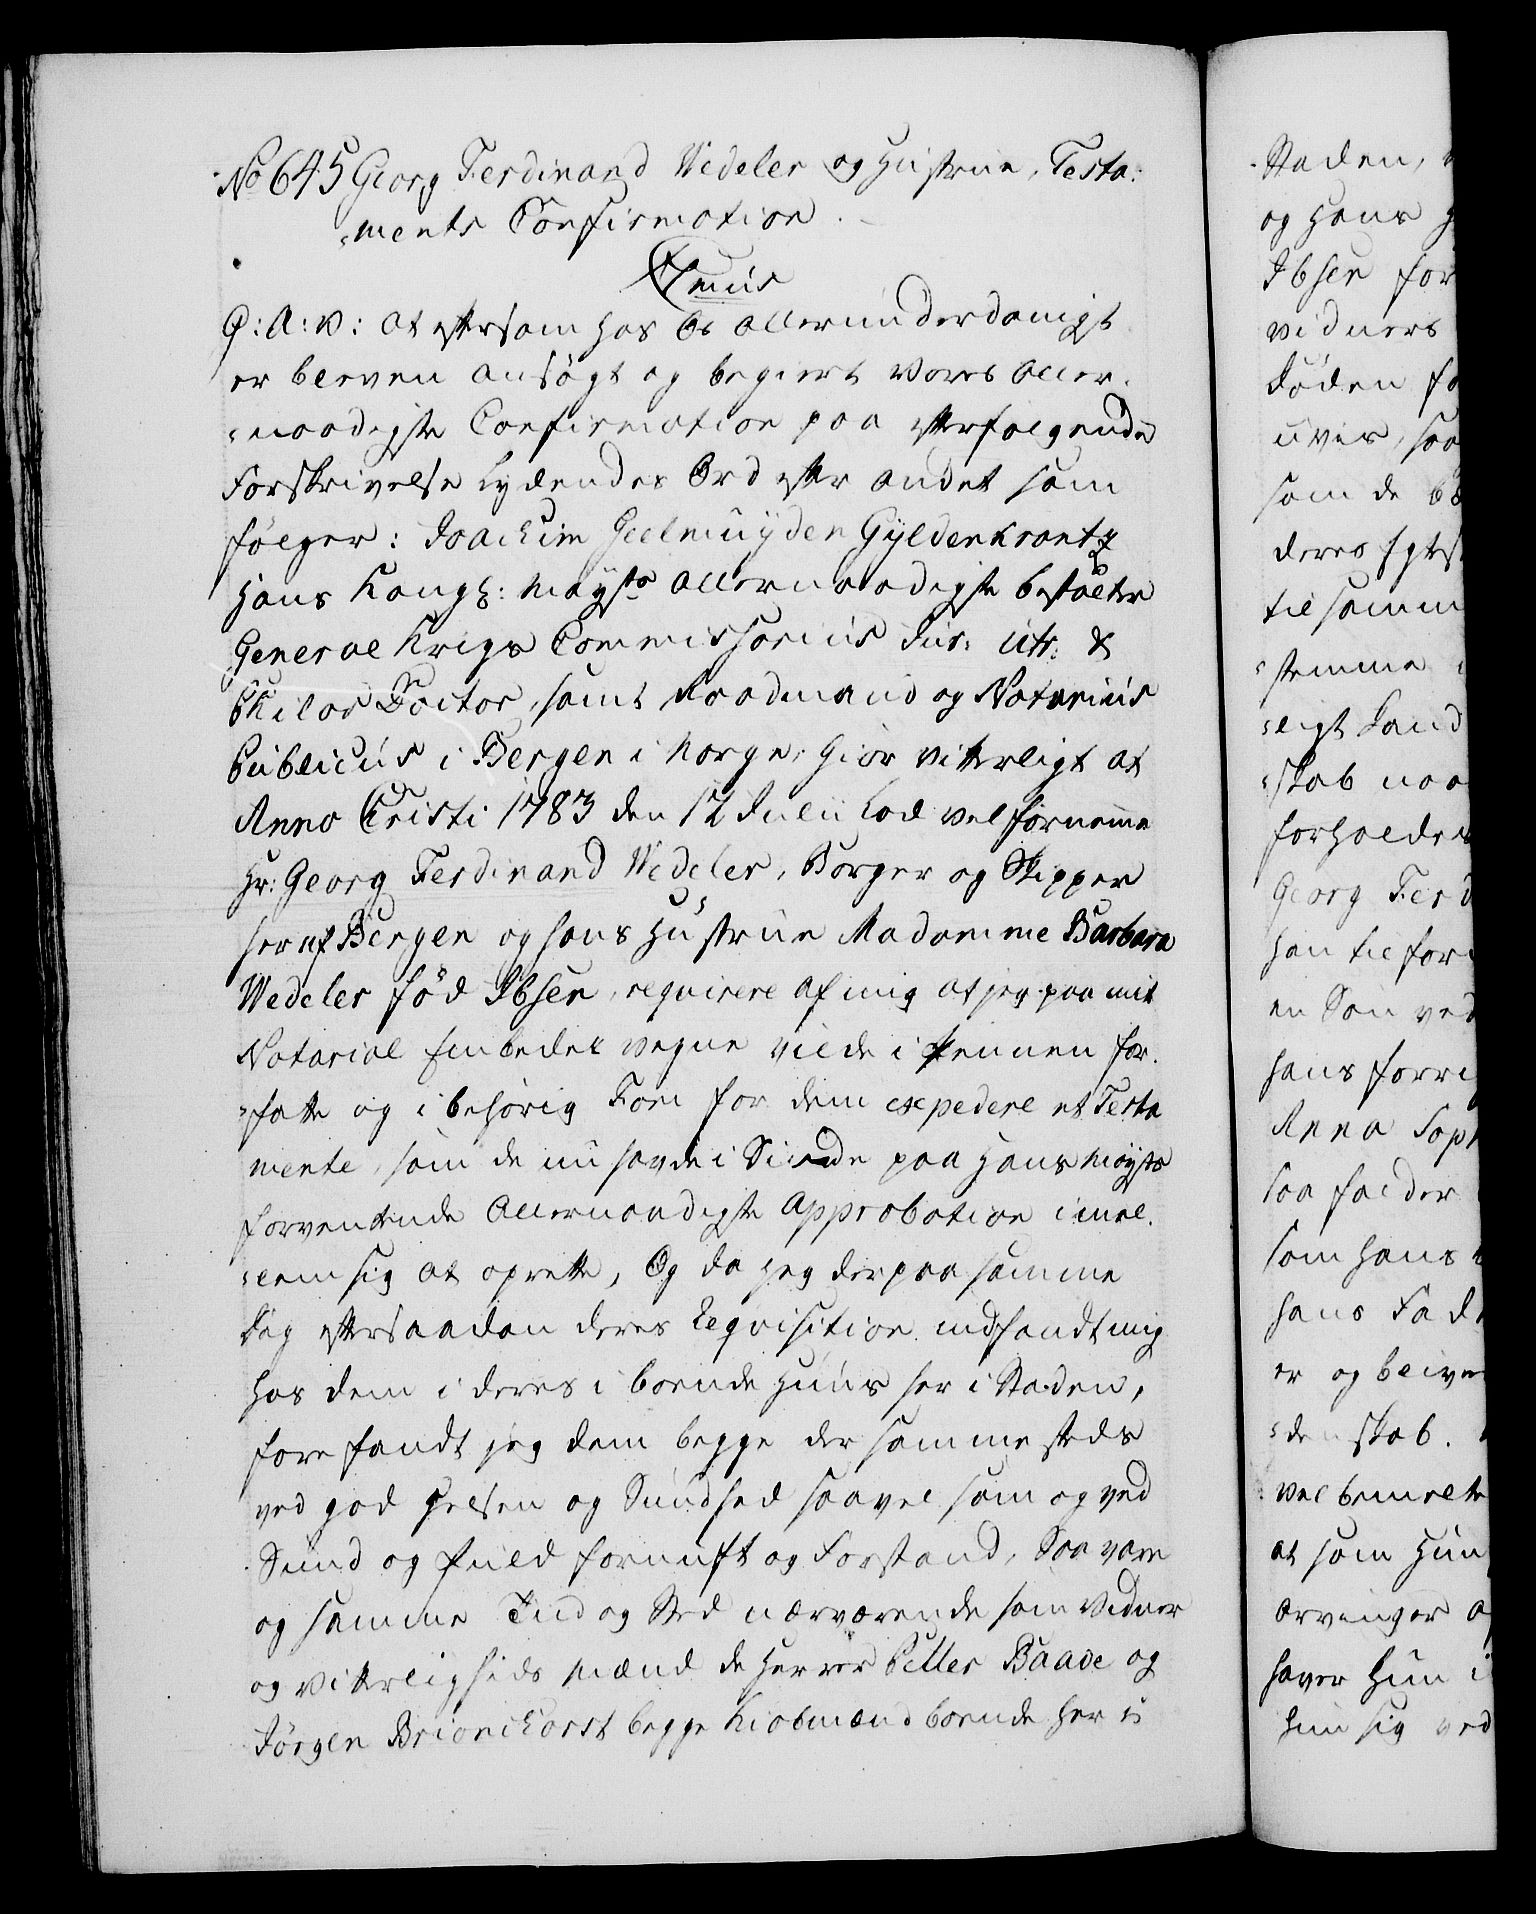 No 645 Georg Ferdinand Wedeler og Hustrue, Testa:
:ments Confirmation.
G: A: V: at eftersom hos Os allerunderdanigst
er bleven ansøgt og begiert Vores aller-
:naadigste Confirmation paa efterfølgende
Forskrivelse Lydendes Ord efter andet som
følger: Joachim Geelmuÿden Gÿldenkrantz
Hans Kongl: Mayts allernaadigste bestalter
General Krigs Commissarius Jur: Utr: &
Philos Doctor, samt Raadmand og Notarius
Publicus i Bergen i Norge, Giør vitterligt at
Anno Christi 1783 den 12 Julii Lod velfornemme
Hr: Georg Ferdinand Wedeler, Borger og Skipper
her af Bergen og hans Hustrue Madamme Barbara
Wedeler fød Ibsen, reqvirere af mig at jeg paa mit
Notarial Embedes vegne vilde i Pennen for-
:fatte og i behørig Form for dem expedere et Testa
mente, som de nu havde i Sinde paa Hans Mayts
forventende Allernaadigste Approbation imel-
:lem sig at oprette, Og da jeg derpaa samme
Dag efter saadan deres Reqvisition indfandt mig
hos dem i deres i boende Huus her i Staden,
forefandt jeg dem begge der sammesteds
ved god Helsen og Sundhed saavel som og ved
Sund og fuld fornuft og Forstand, Saa vare
og samme Tiid og Sted nærværende som Vidner
og Vitterligheds Mænd de Herrer Petter Baade og
Jørgen Brionchorst begge Kiøbmænd boende her i
Staden,
og Hans
Ibsen for
vidners
Døden
uvis, saa
som de
deres
tilsamm
:stemme
:ligt Land
:skab
forholder
Georg Ferd
han tilfor
en Søn ved
hans forri
Anna Soph
saa falder
som hans
hans Fad
er og bliver
:denskab.
velbemelte
at som Hun
Arvinger
haver Hun i
hun sig ved